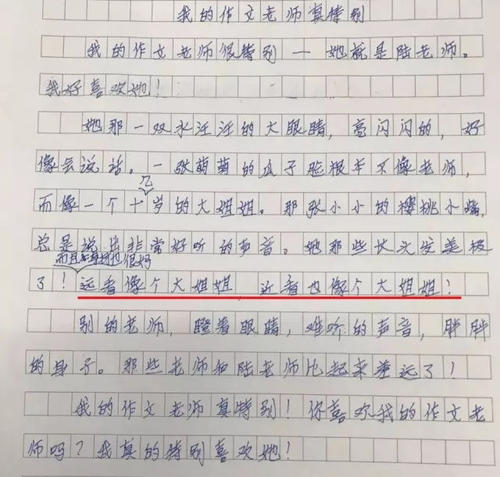 我的作文老师真特别
我的作文老师很特别一她就是陆老师。
我好喜欢她！
她那一双水汪汪的大眼睛，亮闪闪的，好
像会说话。一张萌萌的瓜子脸根本不像老师，
而像一个十几岁的大姐姐。那张小小的樱桃小嘴，
总是说出非常好听的声音。她那些长头发美极
而且身材也很好
了！远看像个大姐姐，近看也像个大姐姐！
别的老师，瞪着眼睛，难听的声音，胖胖
的身子。那些老师和陆老师比起来差远了！
我的作文老师真特别！你喜欢我的作文老
师吗？我真的特别喜欢她！